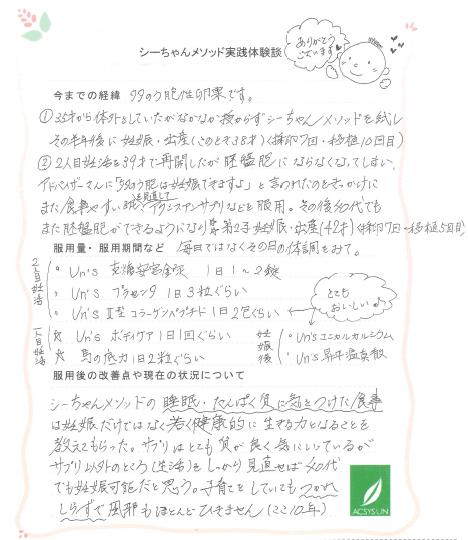 ありがとう
ございます
シーちゃんメソッド実践体験談
今までの経緯 多のう胞性卵巣です。
①35才から体外をしていたがなかなか授からずシーちゃんメソッドを試し
その半年後に妊娠・出産(このとき38才)(採卵7回・移植10回目)
②2人目妊活を39才で再開したが胚盤胞にならなくなってしまい
アドバイザーさんに「多のう胞は妊娠できますよ」と言われたのをきっかけに
また食事やすい眠を見直してイクシスアンサプリなどを服用。その後40代でも
また胚盤胞ができるようになり第2子妊娠・出産(42才)(採卵7回・移植5回目)
服用量・服用期間など 毎日ではなくその日の体調をみて。
2人目妊活
。Un's 1日1〜2錠
。Un's プラセンタ 1日3粒ぐらい
。Un's Ⅱ型コラーゲンペプチド 1日2包ぐらい
とても
おいしい♪
1人目妊活
☆ Un's ボディケア 1日1回ぐらい
☆ 馬の底力 1日2粒ぐらい
妊娠後
。Un'sユニカルカルシウム
。Un's
服用後の改善点や現在の状況について
シーちゃんメソッドの睡眠・たんぱく質に気をつけた食事
は妊娠だけではなく若く健康的に生きる力となることを
教えてもらった。サプリはとても質が良く気にしているが
サプリ以外のところ(生活)をしっかり見直せば40代
でも妊娠可能だと思う。子育てをしていてもつかれ
しらずで風邪もほとんどひきません(ここ10年)
ACSYSUN